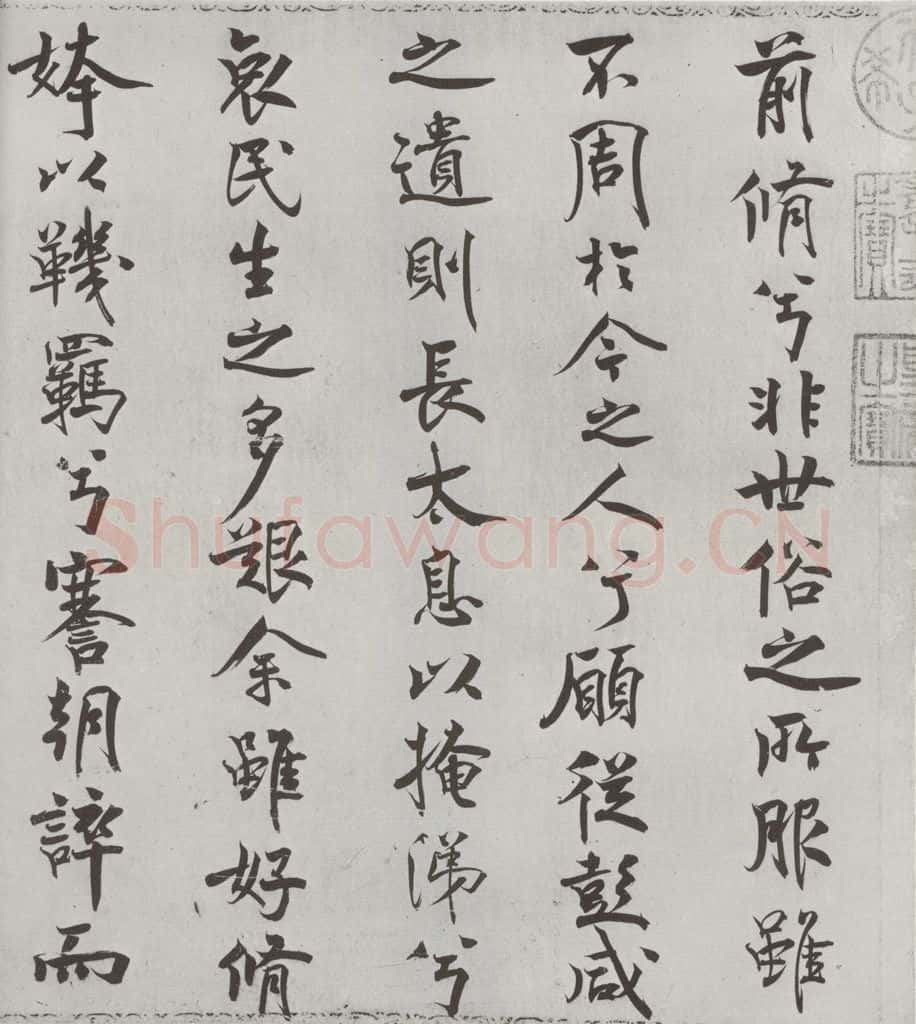 前脩兮非世俗之所服雖
不周於今之人兮願從彭咸
之遺則長太息以掩涕兮
哀民生之多艱余雖好脩
姱以鞿羈兮謇朝誶而
Shufawang.CN